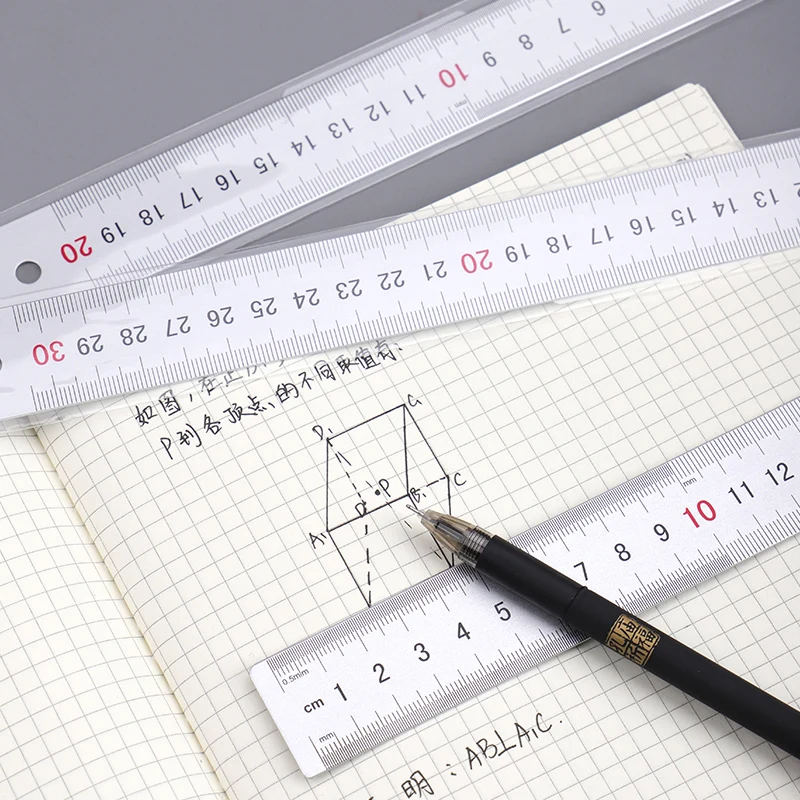 6 7 8 9 10 11 12 13 14 15 16 17 18 19 20
mm
12 13 14 15 16 17 18 19 20 21 22 23 24 25 26 27 28 29 30
如图，在正
P到各顶点的不同取值有：
D₁ C₁
P C
D B₁
A₁
0.5mm
cm 1 2 3 4 5 7 8 9 10 11 12
mm
mm
明：AB⊥A₁C.